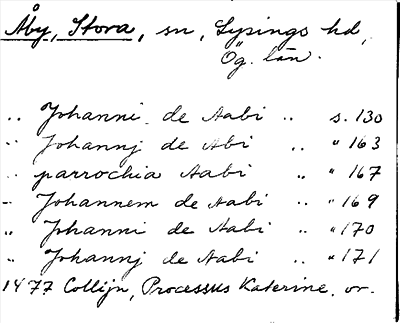 Åby, Stora, sn, Lysings hd,
Ög. län.
.. Johanni de Aabi .. s. 130
.. Johannj de Abi .. " 163
.. parrochia Aabi " " 167
.. Johannem de Aabi .. " 169
" Johanni de Aabi .. " 170
" Johannj de Aabi " " 171
1477 Collijn, Processus Katerine. or.